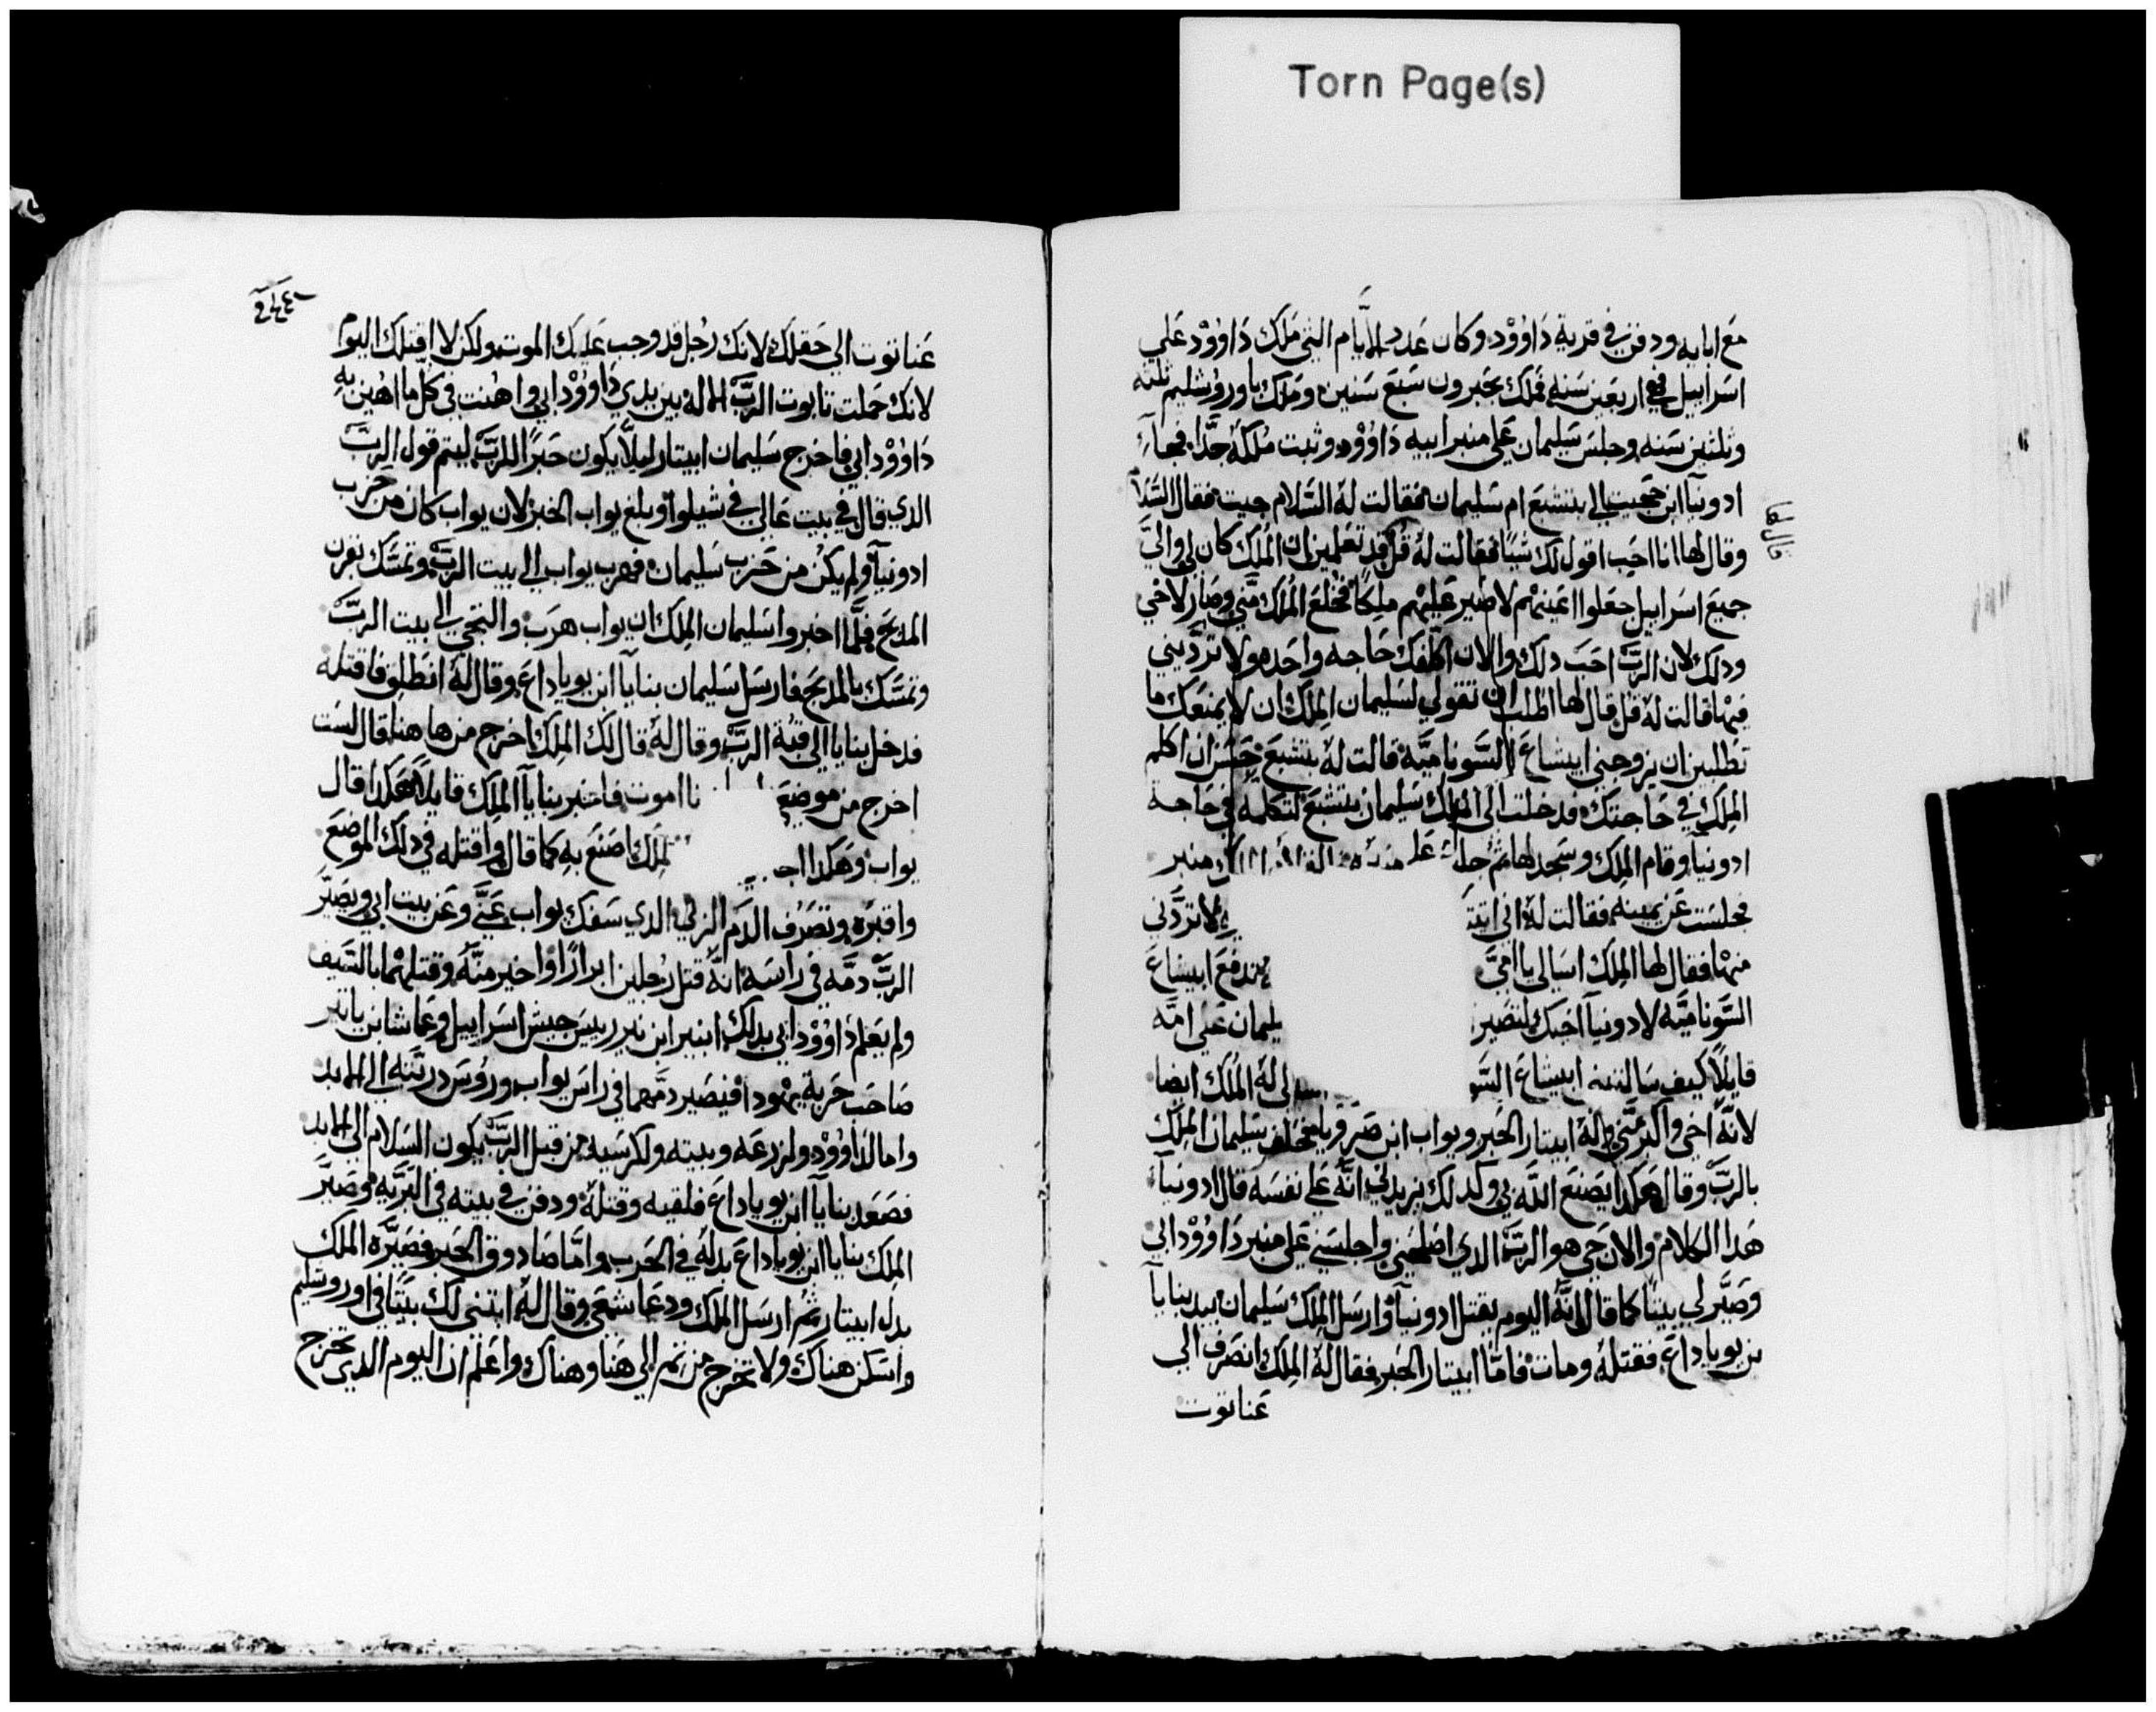 Torn Page(s)
مع ابايه ودفن في قرية داوود وكان عدد الأيام التي ملك داوود علي
اسراييل في اربعين سنه فملك بحبرون سبع سنين وملك باوروشليم ثلثه
وثلثين سنه وجلس سليمان علي منبر ابيه داوود وثبت ملكه جدا فجاء
ادونيا ابن حجيب الي بتشبع ام سليمان فقالت له السلام جيت فقال السلام
وقال لها انا احب اقول لك شيا فقالت له قل قد تعلمين ان الملك كان لي والي
جميع اسراييل جعلوا اعينهم لاصير عليهم ملكا فخلع الملك مني وصار لاخي
ودلك لان الرب احب دلك والان اكلفك حاجه واحده ولا تردديني
فيها قالت له قل قال لها اطلب ان تقولي لسليمان الملك ان لا يمنعك ما
تطلبين ان يزوجني ابيشاع السوناميه قالت له بتشبع حسن ان اكلم
الملك في حاجتك فدخلت الي الملك سليمان بتشبع لتكلمه في حاجة
ادونيا وقام الملك وسجد لها ثم جلس علي منبر
فجلست عن يمينه فقالت له اني لا تردني
منها فقال لها الملك اسالي يا امي تدفع ابيشاع
السوناميه لادونيا اخيك لتصير ليمان علي امه
قايلا كيف سالتني ابيشاع السو لي له الملك ايضا
لانه اخي واكبر مني وله ابيتار الحبر ويواب ابن صرويا فحلف سليمان الملك
بالرب وقال هكدا يصنع الله بي وكدلك يزيدني انه علي نفسه قال ادونيا
هدا الكلام والان حي هو الرب الدي اصلحني واجلسني علي منبر داوود ابي
وصير لي بيتا كما قال انه اليوم يقتل ادونيا وارسل الملك سليمان بيد بنايا
بن يوياداع فقتله ومات فاما ابيتار الحبر فقال له الملك انصرف الي
عناتوت
عناتوت الي حقلك لانك رجل قد وجب عليك الموت ولكن لا اقتلك اليوم
لانك حملت تابوت الرب الاله بين يدي داوود ابي واهنت في كل ما اهين به
داوود ابي فاخرج سليمان ابيتار ليلا يكون حبرا للرب ليتم قول الرب
الدي قال في بيت عالي في شيلوا وبلغ يواب الخبر لان يواب كان من حزب
ادونيا ولم يكن من حزب سليمان فهرب يواب الي بيت الرب وتمسك بقرن
المدبح فلما اخبروا سليمان الملك ان يواب هرب والتجي الي بيت الرب
وتمسك بالمدبح فارسل سليمان بنايا ابن يوياداع وقال له انطلق فاقتله
فدخل بنايا الي قبة الرب وقال له قال لك الملك اخرج من ها هنا قال لست
اخرج من موضعي نا اموت فاخبر بنايا الملك قايلا هكدا قال
يواب وهكدا اجـ لملك اصنع به كما قال واقتله في دلك الموضع
واقبره وتصرف الدم الزكي الدي سفك يواب عني وعن بيت ابي ويصير
الرب دمه في راسه انه قتل رجلين ابرارا واخير منه وقتلهما بالسيف
ولم يعلم داوود ابي بدلك ابنير ابن نير رييس جيش اسراييل وعماشا بن ياتر
صاحب حربة يهودا فيصير دمهما في راس يواب وروس دريته الي الابد
واما لداوود ولزرعه وبيته ولكرسيه من قبل الرب يكون السلام الي الابد
فصعد بنايا ابن يوياداع فلقيه وقتله ودفن في بيته في البريه وصير
الملك بنايا ابن يوياداع بدله في الحرب واما صادوق الحبر فصيره الملك
بدل ابيتار ثم ارسل الملك ودعا شمعي وقال له ابتني لك بيتا في اوروشليم
واسكن هناك ولا تخرج من ثم الي هنا وهناك واعلم ان اليوم الدي تخرج